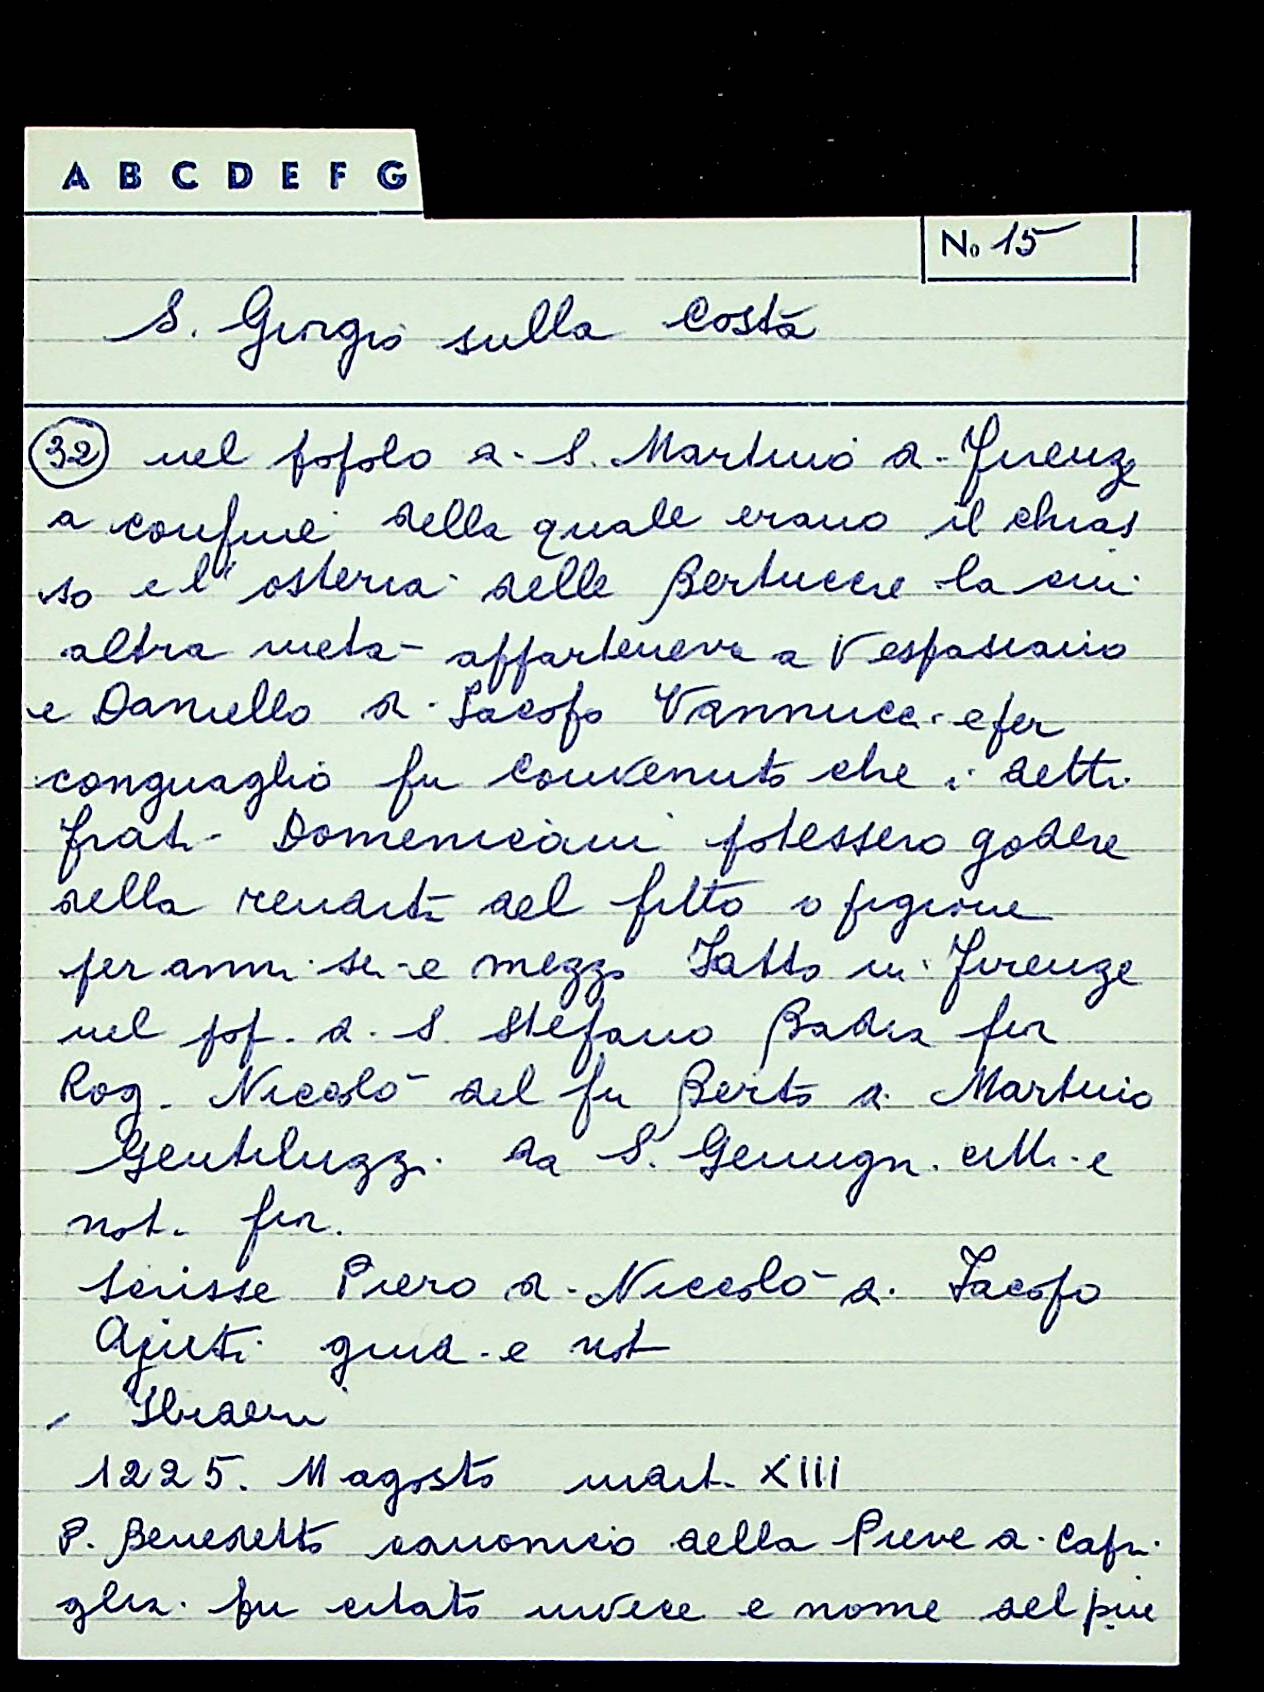 A B C D E F G
No 15
S. Giorgio sulla Costa
32 nel popolo di S. Martino di Firenze
a confine della quale erano il chias
so e l'osteria delle Bertucce la cui
altra metà apparteneva a Vespasiano
e Daniello di Iacopo Vannucci e per
conguaglio fu convenuto che i detti
frati Domenicani potessero godere
della rendita del fitto o pigione
per anni sei e mezzo Fatto in Firenze
nel pop. di S. Stefano Badia per
Rog. Niccolò del fu Berto di Martino
Gentiluzzi da S. Gemign. citt. e
not. fior.
Scrisse Piero di Niccolò di Iacopo
Ajuti giud. e not
Ibidem
1225. 11 agosto indit. XIII
P. Benedetto canonico della Pieve di Capri
glia. fu citato invece e nome del pie